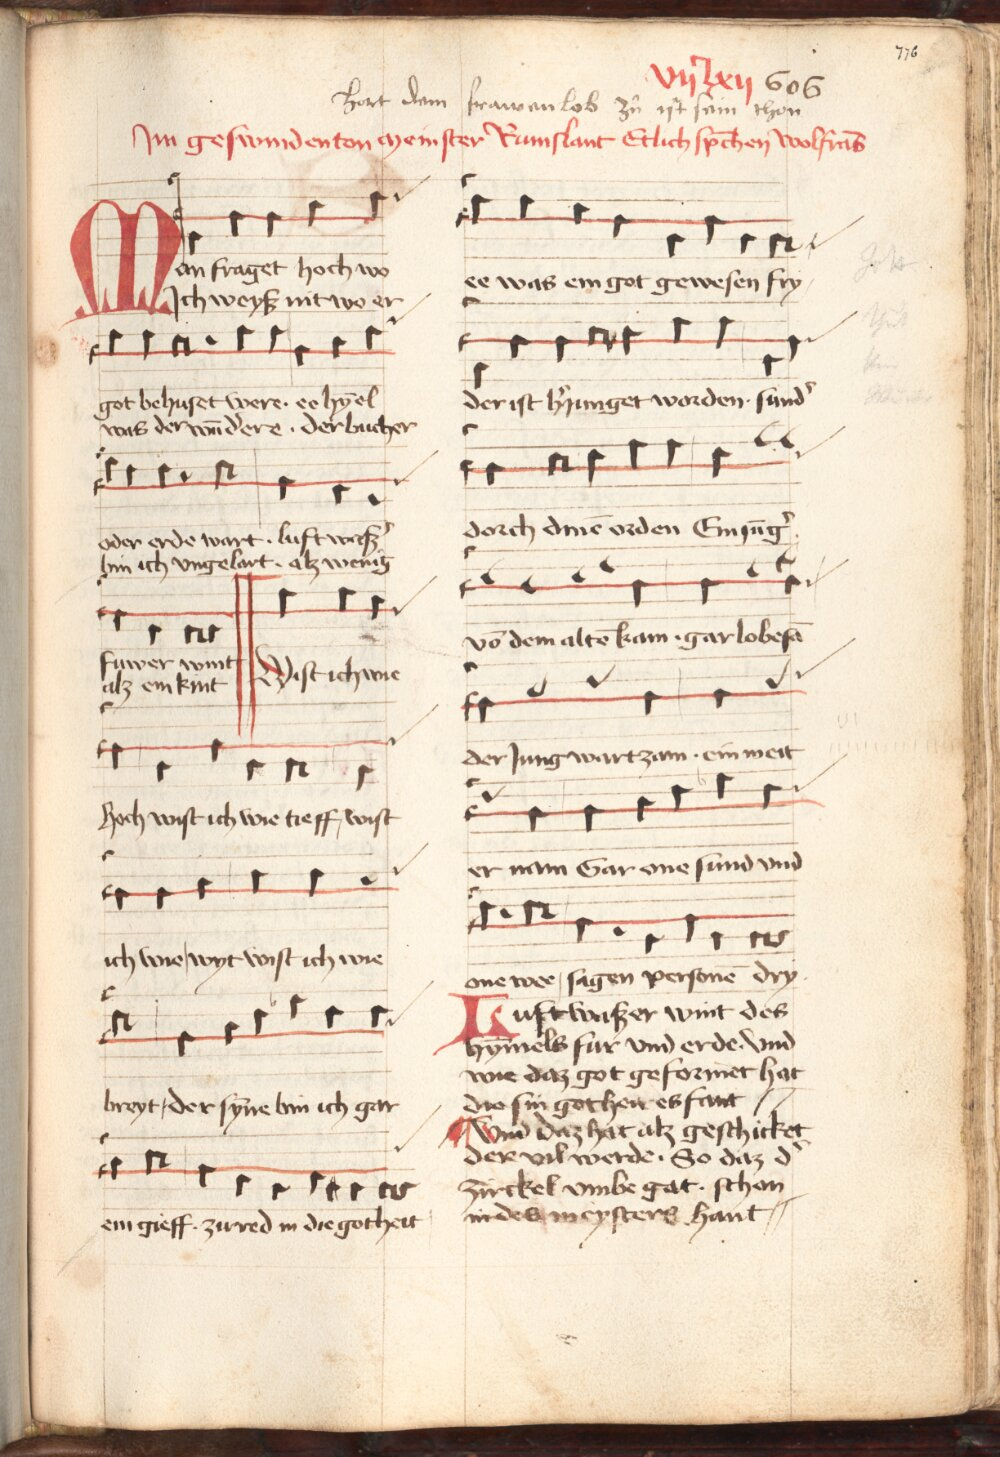 776
vijᶜlxij 606
Hort dem frawenlob zů ist sein thon
Im geswinden ton meinster Rumslant Etlich sp̄chen wolfrās
Man fraget hoch wo
Ich weyß nit wo er
got behuset were · ee hȳel
was der wūdere · der bucher
oder erde wart · luft waßꝰ
bin ich vngelart · alz wenig
fuwer wint
alz ein kint
Wist ich wie
hoch wist ich wie tieff / wist
ich wie / wyt wist ich wie
breyt / der syn̄e bin ich gar
ein gieff · zu red in die gotheit
ee was ein got gewesen fry
der ist v̾iunget worden · sundꝰ
dorch dinē orden Ein iūgꝰ
vō dem altē kam · gar lobesā
der Jung wart zam · ein meit
er nam Gar one sund vnd
one wee / sagen personē dry ·
Luft waßer wint des
hȳmels für vnd erde · vnd
wie daz got geformet hat
die sin gotheit es fant
Vnd daz hat alz geschicket
der vil werde · So daz dꝰ
zirckel vmbe gat · schon
in des meysters hant